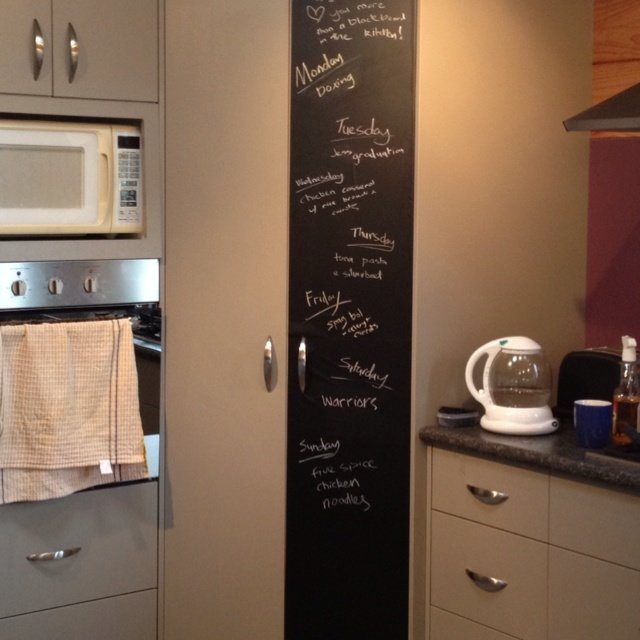 ♡ you more
than a blackboard
in the kitchen!
Monday
boxing
Tuesday
Jess graduation
Wednesday
chicken
w rice brown &
carrots
Thursday
tuna pasta
Friday
spag bol
carrots
Saturday
Warriors
Sunday
five spice
chicken
noodles